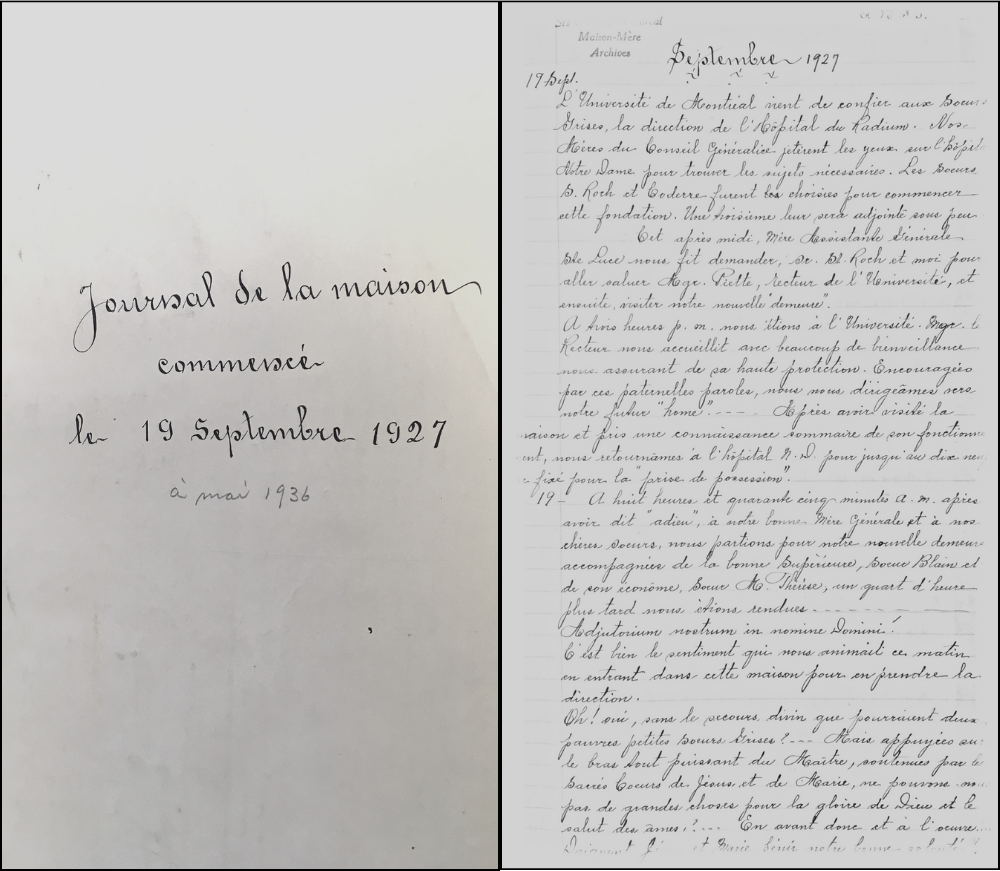 Journal de la maison
commencé
le 19 Septembre 1927
à mai 1936
Maison-Mère
Archives
Septembre 1927
19 Sept.
L'Université de Montréal vient de confier aux Soeurs
Grises, la direction de l'Hôpital du Radium. Nos
Mères du Conseil Généralice jetèrent les yeux sur l'hôpit
Notre Dame pour trouver les sujets nécessaires. Les Soeurs
S. Roch et Coderre furent les choisies pour commencer
cette fondation. Une troisième leur sera adjointe sous peu.
Cet après midi, Mère Assistante Générale
Ste Luce nous fit demander, Sr. St. Roch et moi pour
aller saluer Mgr. Piette, recteur de l'Université, et
ensuite, visiter notre nouvelle "demeure".
A trois heures p. m. nous étions à l'Université. Mgr. le
Recteur nous accueillit avec beaucoup de bienveillance
nous assurant de sa haute protection. Encouragées
par ces paternelles paroles, nous nous dirigeâmes vers
notre futur "home". - - - - Après avoir visité la
maison et pris une connaissance sommaire de son fonctionne
ent, nous retournâmes à l'hôpital N. D. pour jusqu'au dix neu
fixé pour la "prise de possession".
19 - A huit heures et quarante cinq minutes a. m. après
avoir dit "adieu", à notre bonne Mère Générale et à nos
chères soeurs, nous partions pour notre nouvelle demeure
accompagnées de la bonne Supérieure, Soeur Blain et
de son économe, Soeur M. Thérèse, un quart d'heure
plus tard nous étions rendues - - - - - - - -
Adjutorium nostrum in nomine Domini!
C'est bien le sentiment qui nous animait ce matin
en entrant dans cette maison pour en prendre la
direction.
Oh! oui, sans le secours divin que pourraient deux
pauvres petites Soeurs Grises? - - - Mais appuyées su
le bras tout puissant du Maître, soutenues par le
Sacrés Coeurs de Jésus et de Marie, ne pouvons no
pas de grandes choses pour la gloire de Dieu et le
salut des âmes!? - - - En avant donc et à l'oeuvre...
et Marie bénir notre bonne volonté